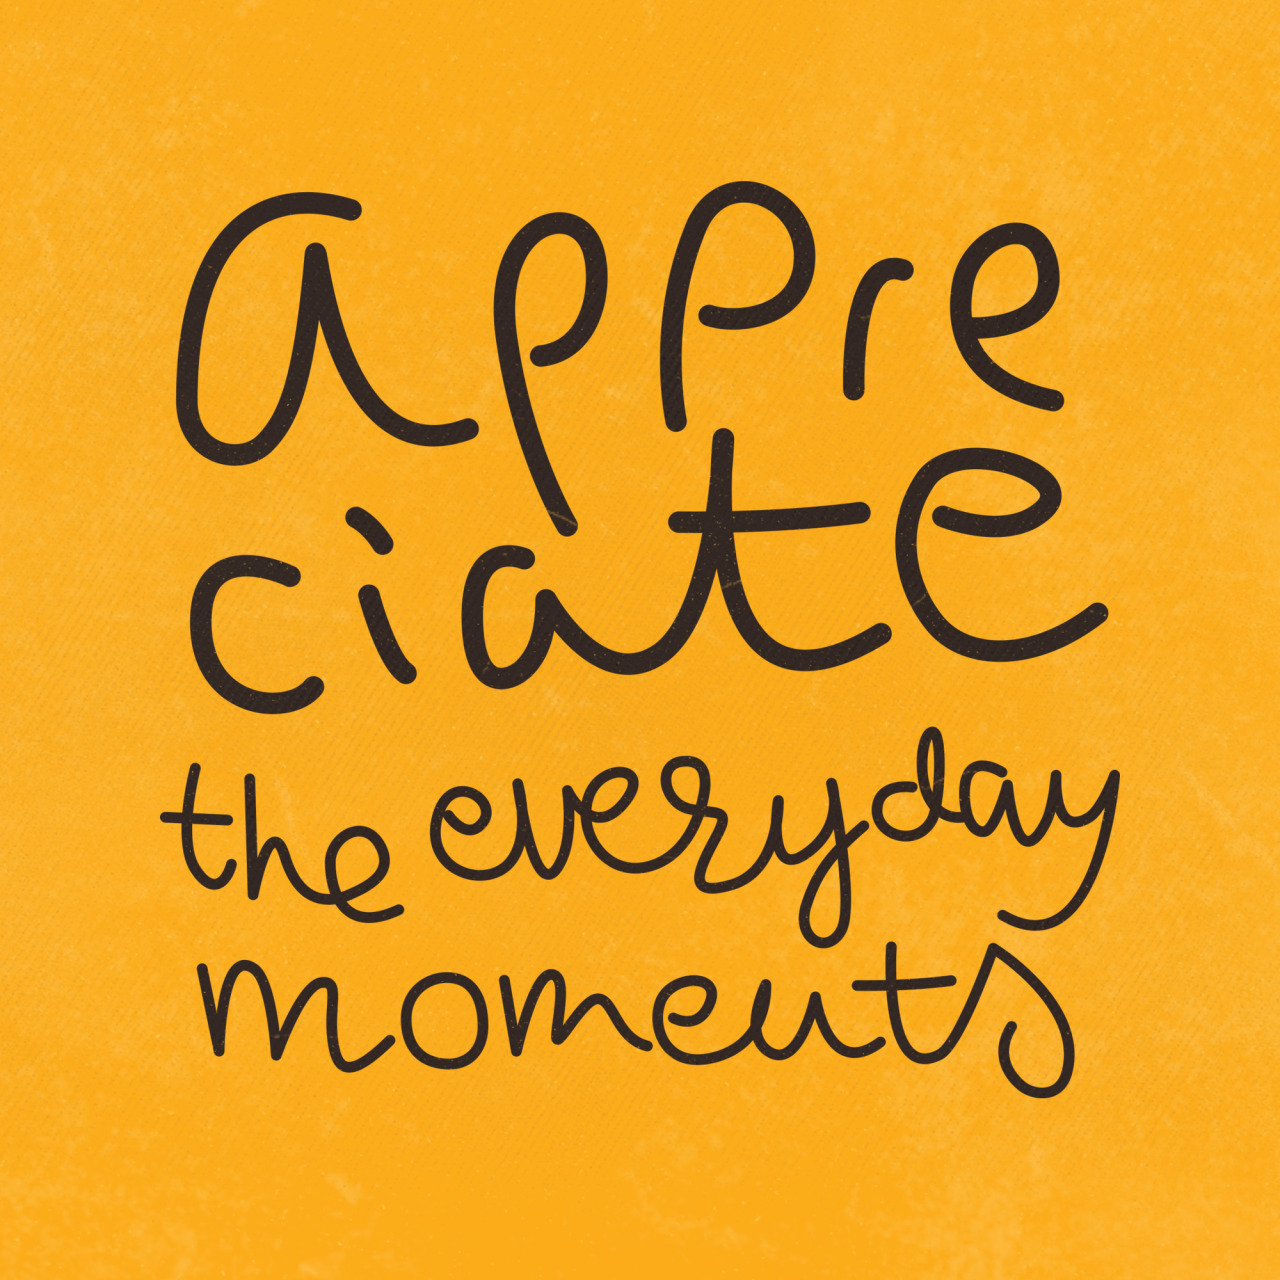 appre
ciate
the everyday
moments